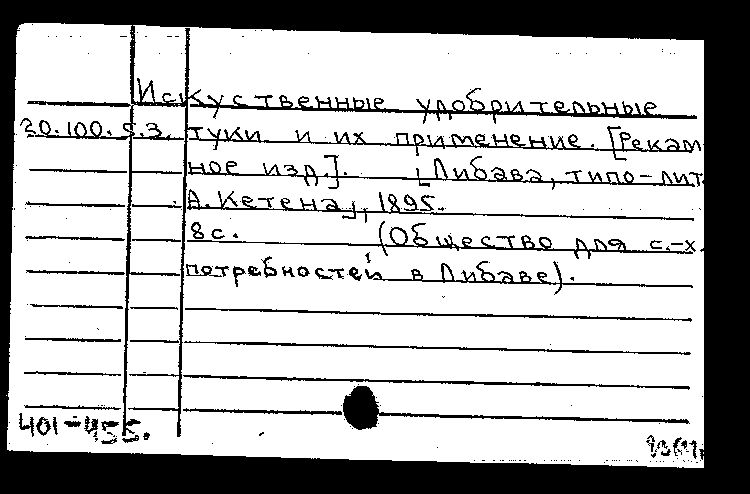 Искуственные удобрительные
20.100.5.3. туки и их применение. [Реклам
ное изд.]. [Либава, типо-лит.
А. Кетена], 1895.
8с. (Общество для с.-х.
потребностей в Либаве).
401-455.